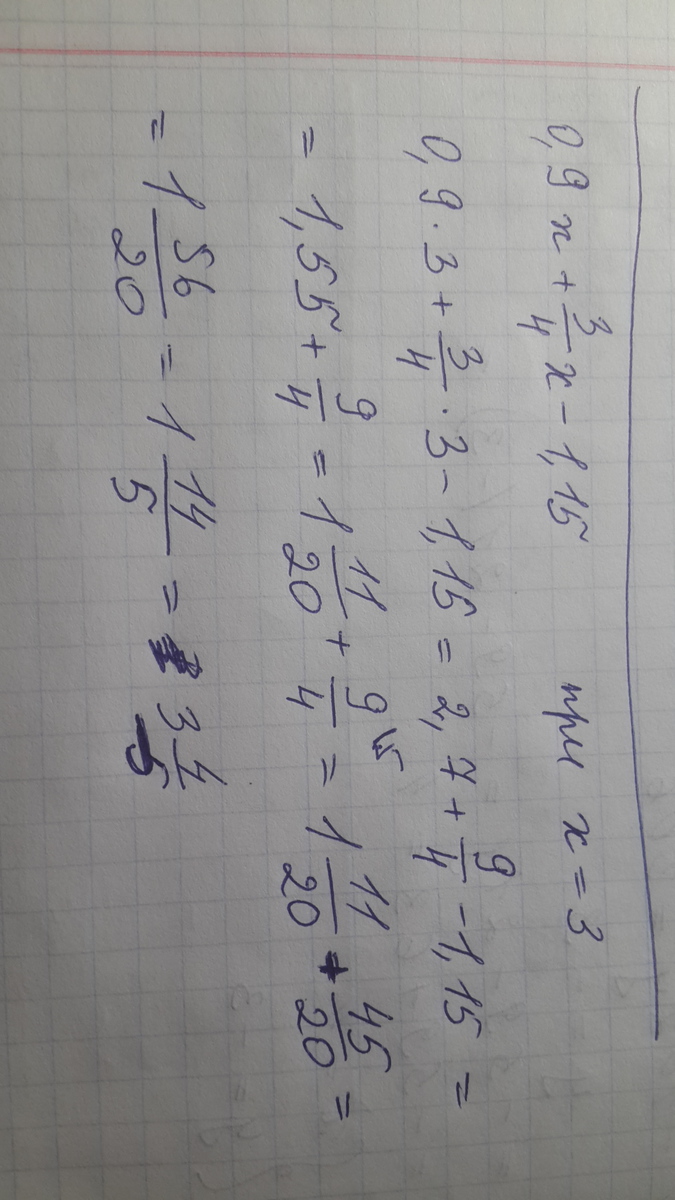 0,9x + 3/4 x - 1,15 при x = 3
0,9 · 3 + 3/4 · 3 - 1,15 = 2,7 + 9/4 - 1,15 =
= 1,55 + 9/4 = 1 11/20 + 9/4 \5 = 1 11/20 + 45/20 =
= 1 56/20 = 1 14/5 = 3 4/5